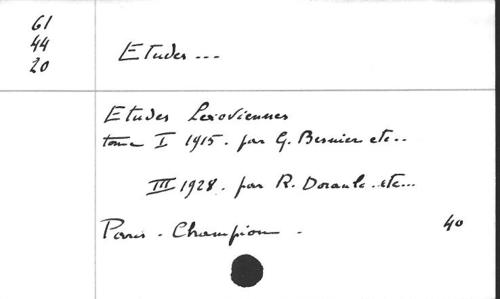 61
44
20
Etudes ...
Etudes Lexoviennes
tome I 1915. par G. Besnier etc..
III 1928. par R. Doranlo. etc...
Paris - Champion -
40